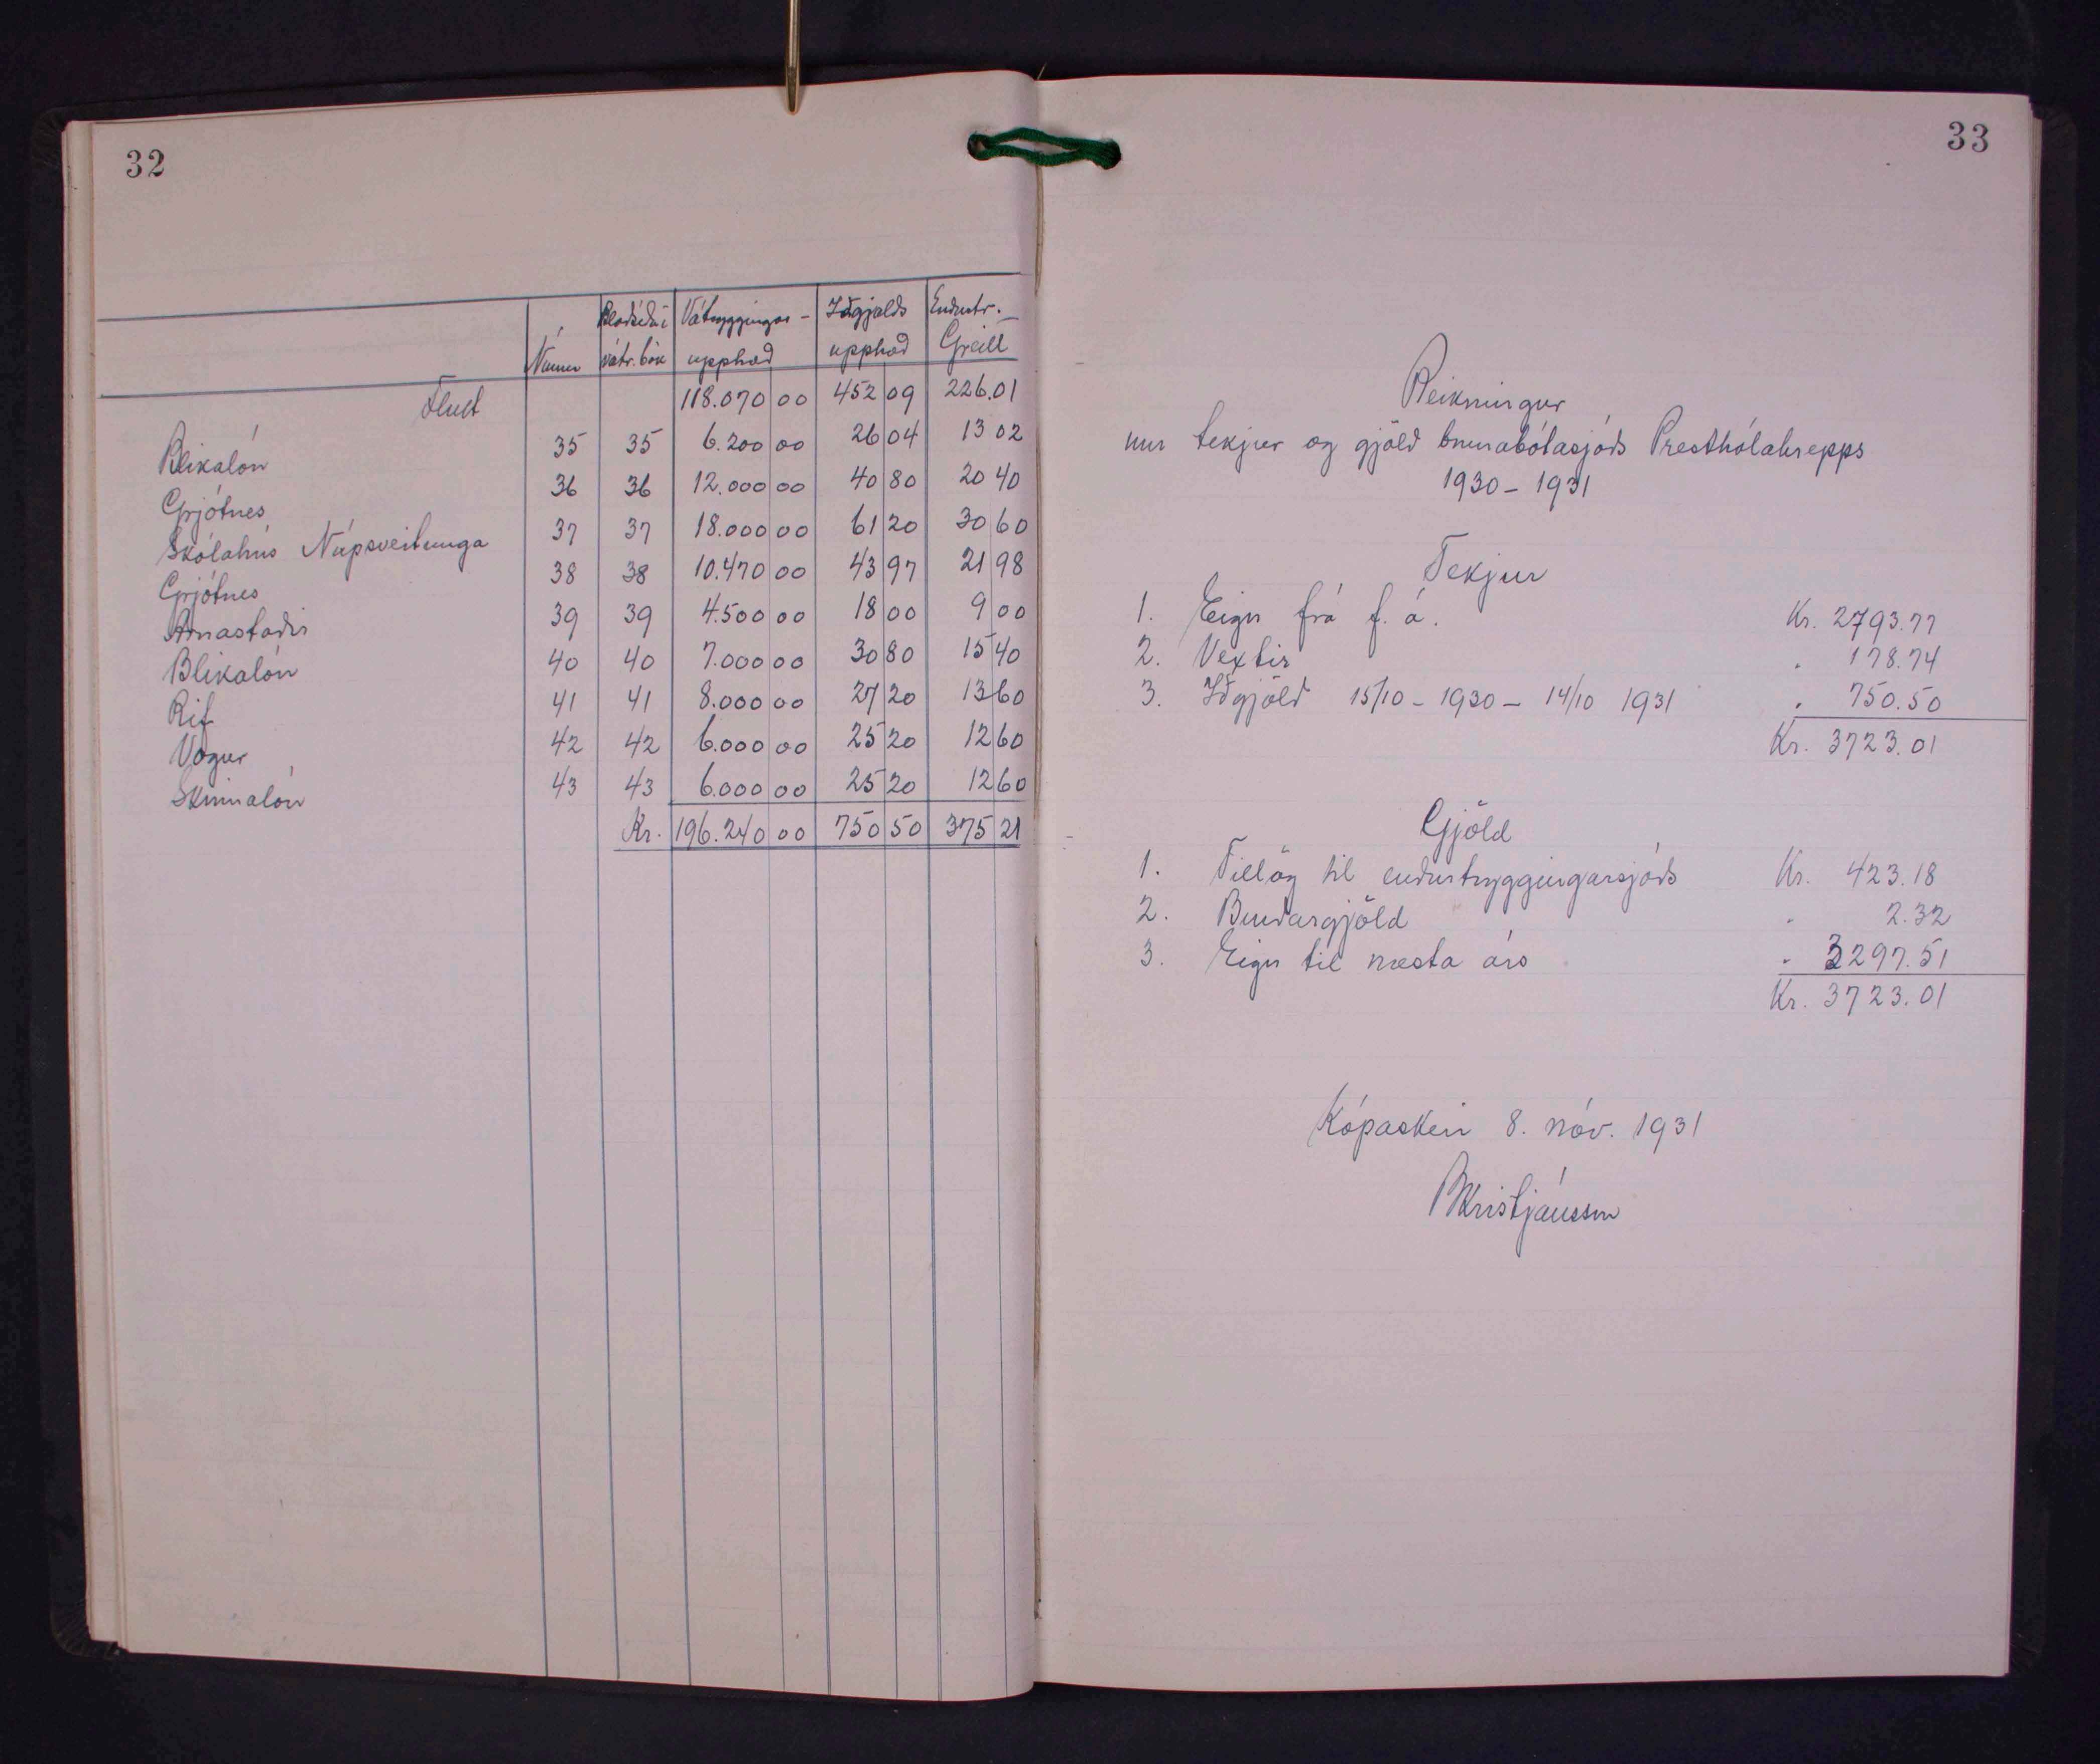 32
Númer Blaðsíða í vátr. bók Vátryggingar- upphæð Iðgjalds upphæð Endurtr. Greitt
Flutt 118.070 00 452 09 226.01
Blikalón 35 35 6.200 00 26 04 13 02
Grjótnes 36 36 12.000 00 40 80 20 40
Skólahús Núpsveitunga 37 37 18.000 00 61 20 30 60
Grjótnes 38 38 10.470 00 43 97 21 98
Arnastaðir 39 39 4.500 00 18 00 9 00
Blikalón 40 40 7.000 00 30 80 15 40
Rif 41 41 8.000 00 27 20 13 60
Vogur 42 42 6.000 00 25 20 12 60
Skinnalón 43 43 6.000 00 25 20 12 60
Kr. 196.240 00 750 50 375 21
33
Reikningur
um tekjur og gjöld brunabótasjóðs Presthólahrepps
1930 – 1931
Tekjur
1. Eign frá f. á. Kr. 2793.77
2. Vextir " 178.74
3. Iðgjöld 15/10 - 1930 – 14/10 1931 " 750.50
Kr. 3723.01
Gjöld
1. Tillög til endurtryggingarsjóðs Kr. 423.18
2. Burðargjöld " 2.32
3. Eign til næsta árs " 3297.51
Kr. 3723.01
Kópasker 8. nóv. 1931
BKristjánsson